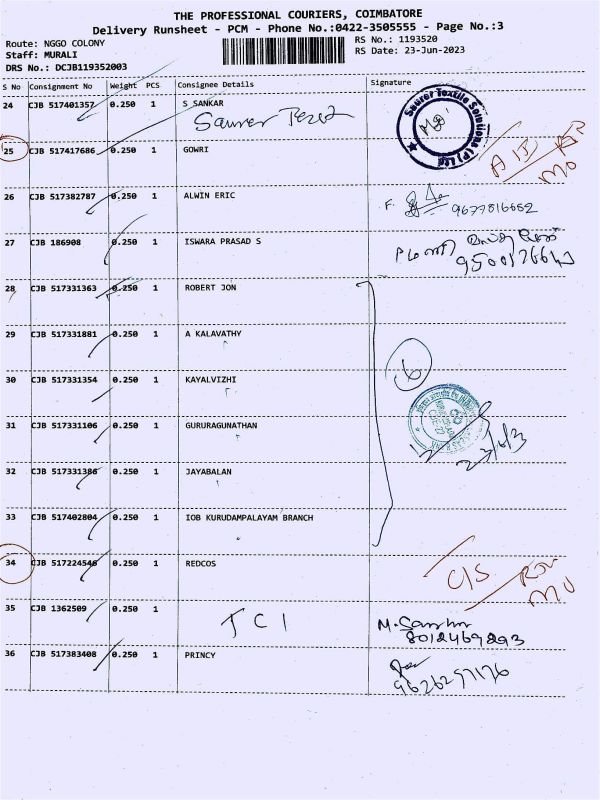 THE PROFESSIONAL COURIERS, COIMBATORE
Delivery Runsheet - PCM - Phone No.:0422-3505555 - Page No.:3
Route: NGGO COLONY
RS No.: 1193520
Staff: MURALI
RS Date: 23-Jun-2023
DRS No.: DCJB119352003
S No Consignment No Weight PCS Consignee Details Signature
24 CJB 517401357 0.250 1 S SANKAR
Saurer Textile Solutions (P) Ltd
25 CJB 517417686 0.250 1 GOWRI
26 CJB 517382787 0.250 1 ALWIN ERIC
27 CJB 186908 0.250 1 ISWARA PRASAD S
28 CJB 517331363 0.250 1 ROBERT JON
29 CJB 517331881 0.250 1 A KALAVATHY
30 CJB 517331354 0.250 1 KAYALVIZHI
6
31 CJB 517331106 0.250 1 GURURAGUNATHAN
32 CJB 517331386 0.250 1 JAYABALAN
33 CJB 517402804 0.250 1 IOB KURUDAMPALAYAM BRANCH
34 CJB 517224546 0.250 1 REDCOS
C/S
35 CJB 1362509 0.250 1 TCI
36 CJB 517383408 0.250 1 PRINCY